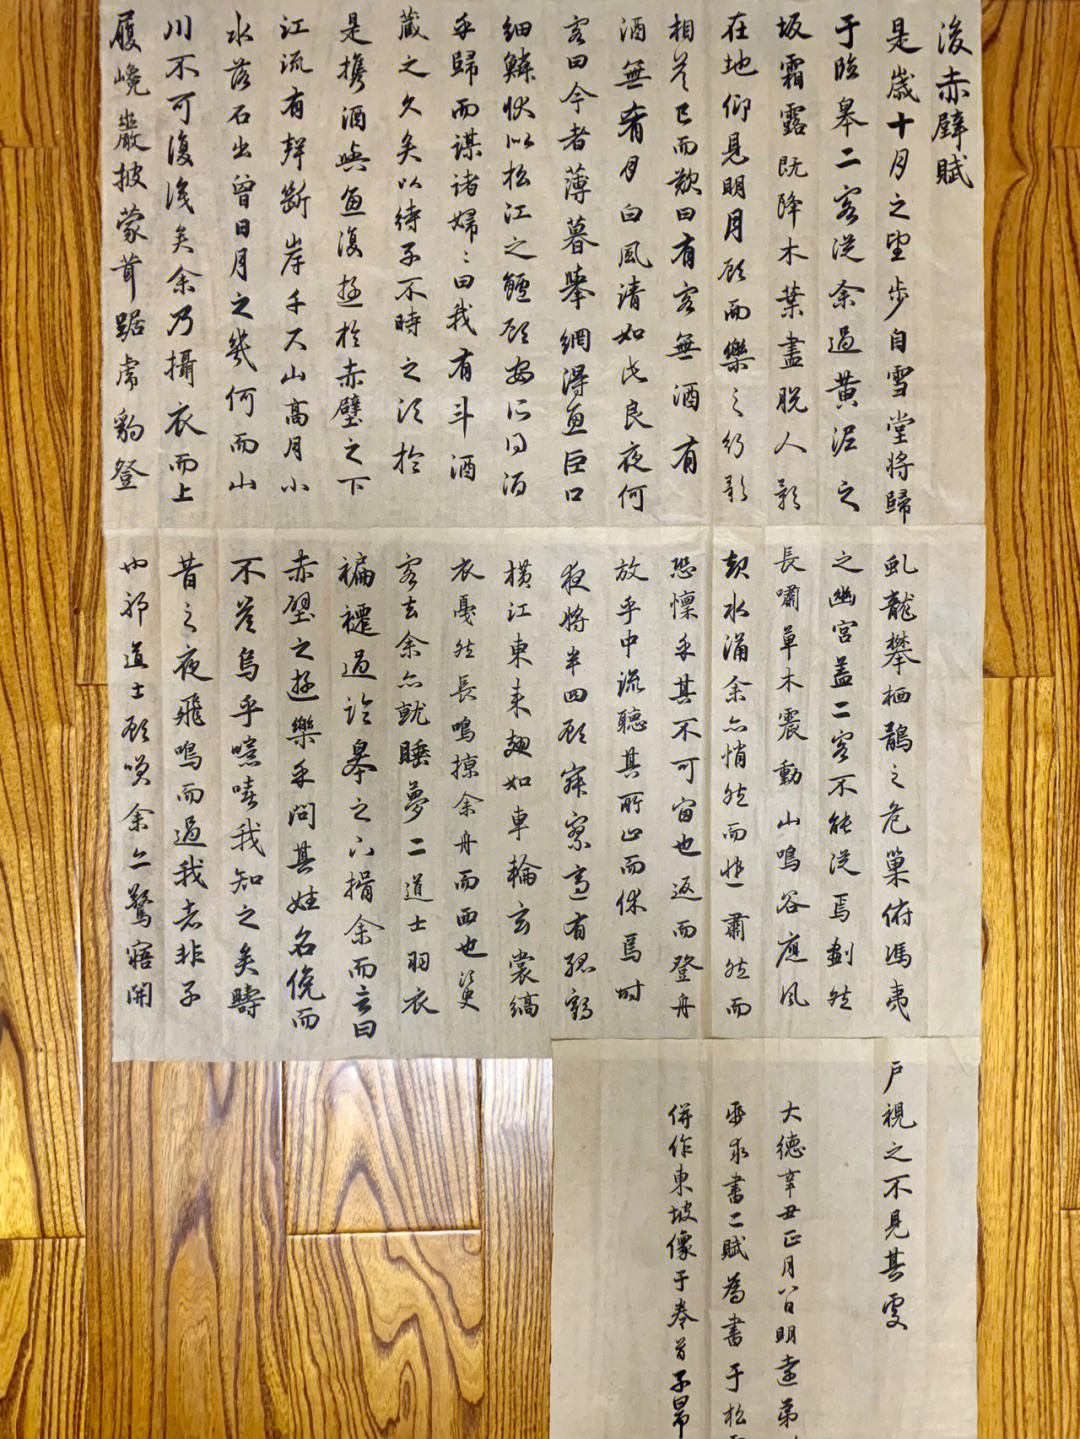 後赤壁賦
是歲十月之望步自雪堂將歸
于臨皋二客從余過黃泥之
坂霜露既降木葉盡脫人影
在地仰見明月顧而樂之行歌
相答已而歎曰有客無酒有
酒無肴月白風清如此良夜何
客曰今者薄暮舉網得魚巨口
細鱗狀似松江之鱸顧安所得酒
乎歸而謀諸婦〻曰我有斗酒
藏之久矣以待子不時之須於
是攜酒與魚復遊於赤壁之下
江流有聲斷岸千尺山高月小
水落石出曾日月之幾何而山
川不可復識矣余乃攝衣而上
履巉巖披蒙茸踞虎豹登
虬龍攀栖鶻之危巢俯馮夷
之幽宮蓋二客不能從焉劃然
長嘯草木震動山鳴谷應風
起水涌余亦悄然而悲肅然而
恐懍乎其不可留也返而登舟
放乎中流聽其所止而休焉時
夜將半四顧寂寥適有孤鶴
橫江東來翅如車輪玄裳縞
衣戛然長鳴掠余舟而西也須臾
客去余亦就睡夢二道士羽衣
褊襹過臨皋之下揖余而言曰
赤壁之遊樂乎問其姓名俛而
不答烏乎噫嘻我知之矣疇
昔之夜飛鳴而過我者非子
也邪道士顧笑余亦驚寤開
戶視之不見其處
大德辛丑正月八日明遠弟
要求書二賦為書于松
併作東坡像于卷首子昂